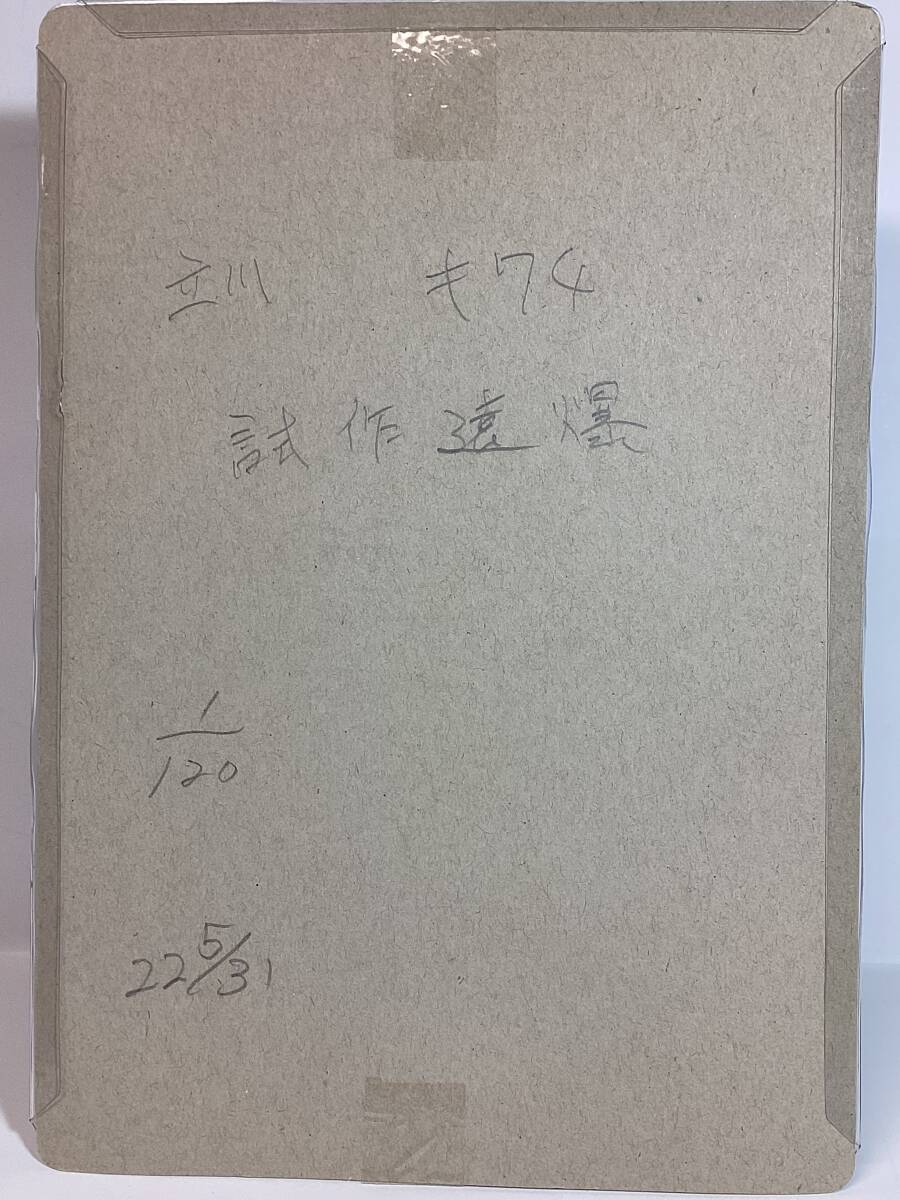 立川 キ74
試作遠爆
1/120
22 5/31